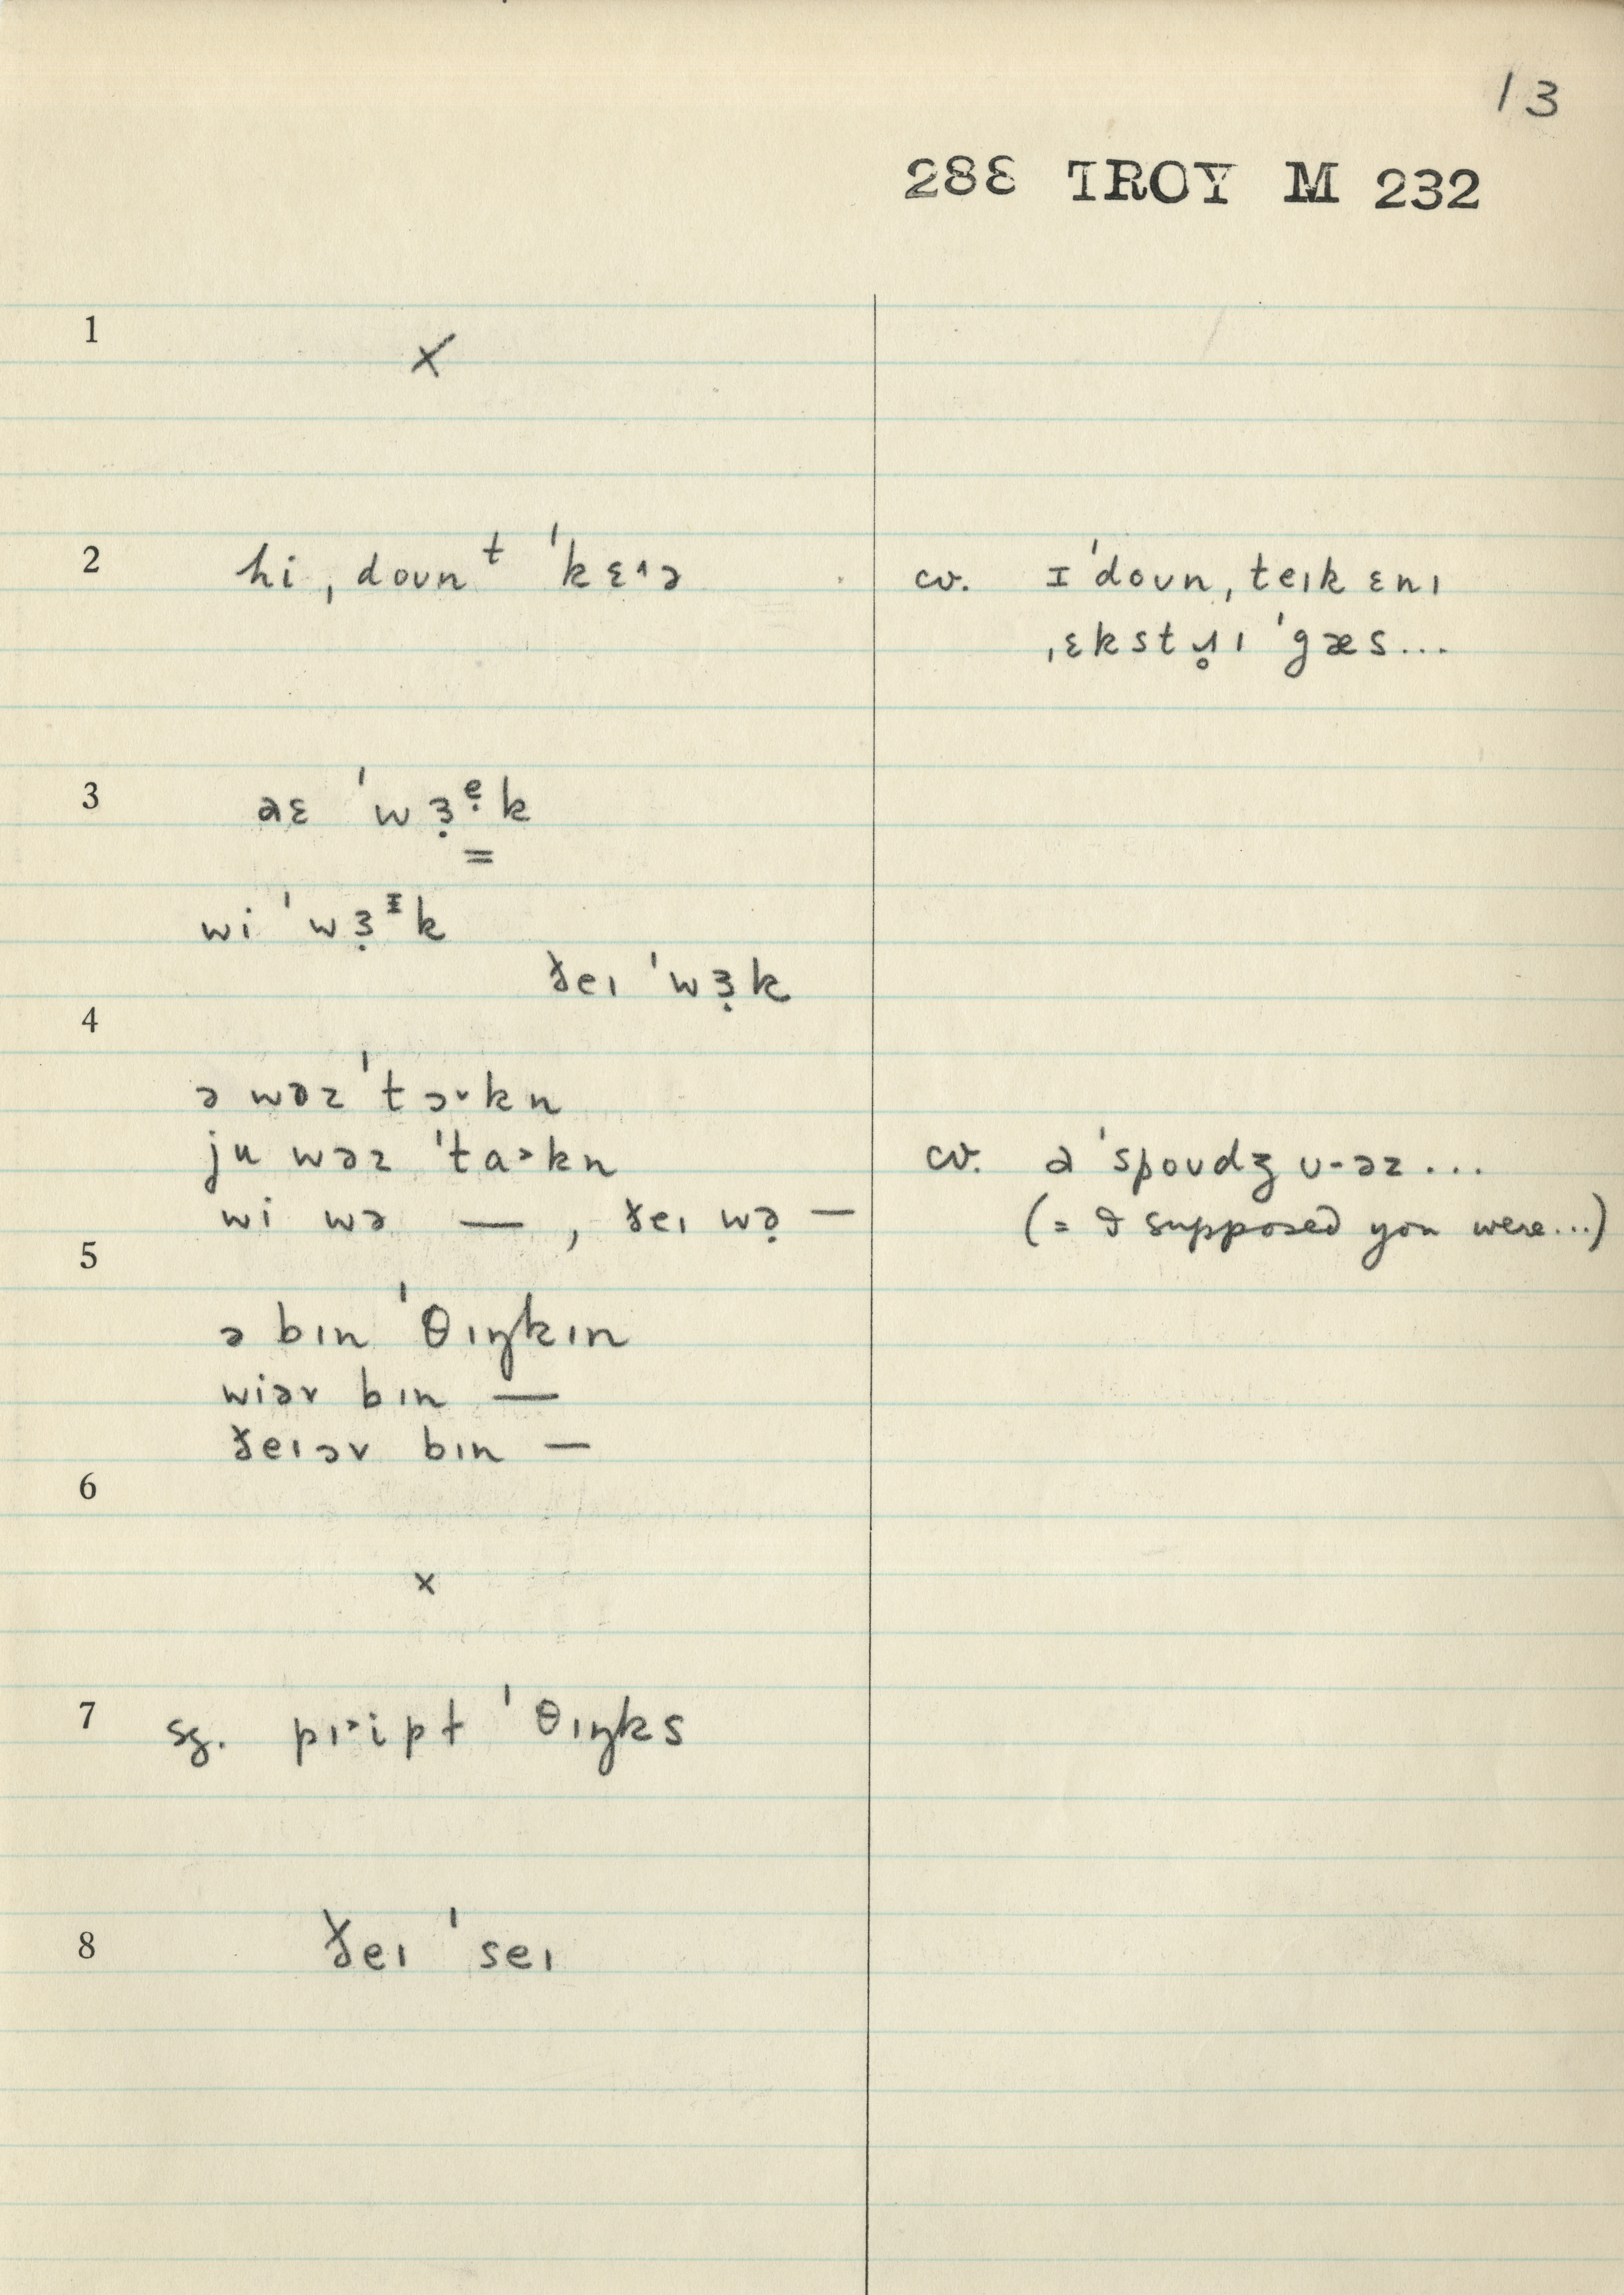 13
288 TROY M 232
1
x
2 hi ˌdoʊnᵗ ˈkɛ˔ə
cv. ɪ ˈdoʊn ˌteɪk ɛnɪ
ˌɛkstɹ̥ɪ ˈgæs...
3 aɛ ˈwɜ̣ᵉ̣k
=
wi ˈwɜ̣ᶦk
ðeɪ ˈwɜ̣k
4
ə wəz ˈtɔ˅kn
ju wəz ˈta˃kn
wi wə — , ðeɪ wə̣ —
cv. a ˈspoʊdʒ ʊ-əz...
(= I supposed you were...)
5
ə bɪn ˈθɪŋkɪn
wiəv bɪn —
ðeɪəv bɪn —
6
x
7 sg. pɪ˃ipt ˈθɪŋks
8 ðeɪ ˈseɪ